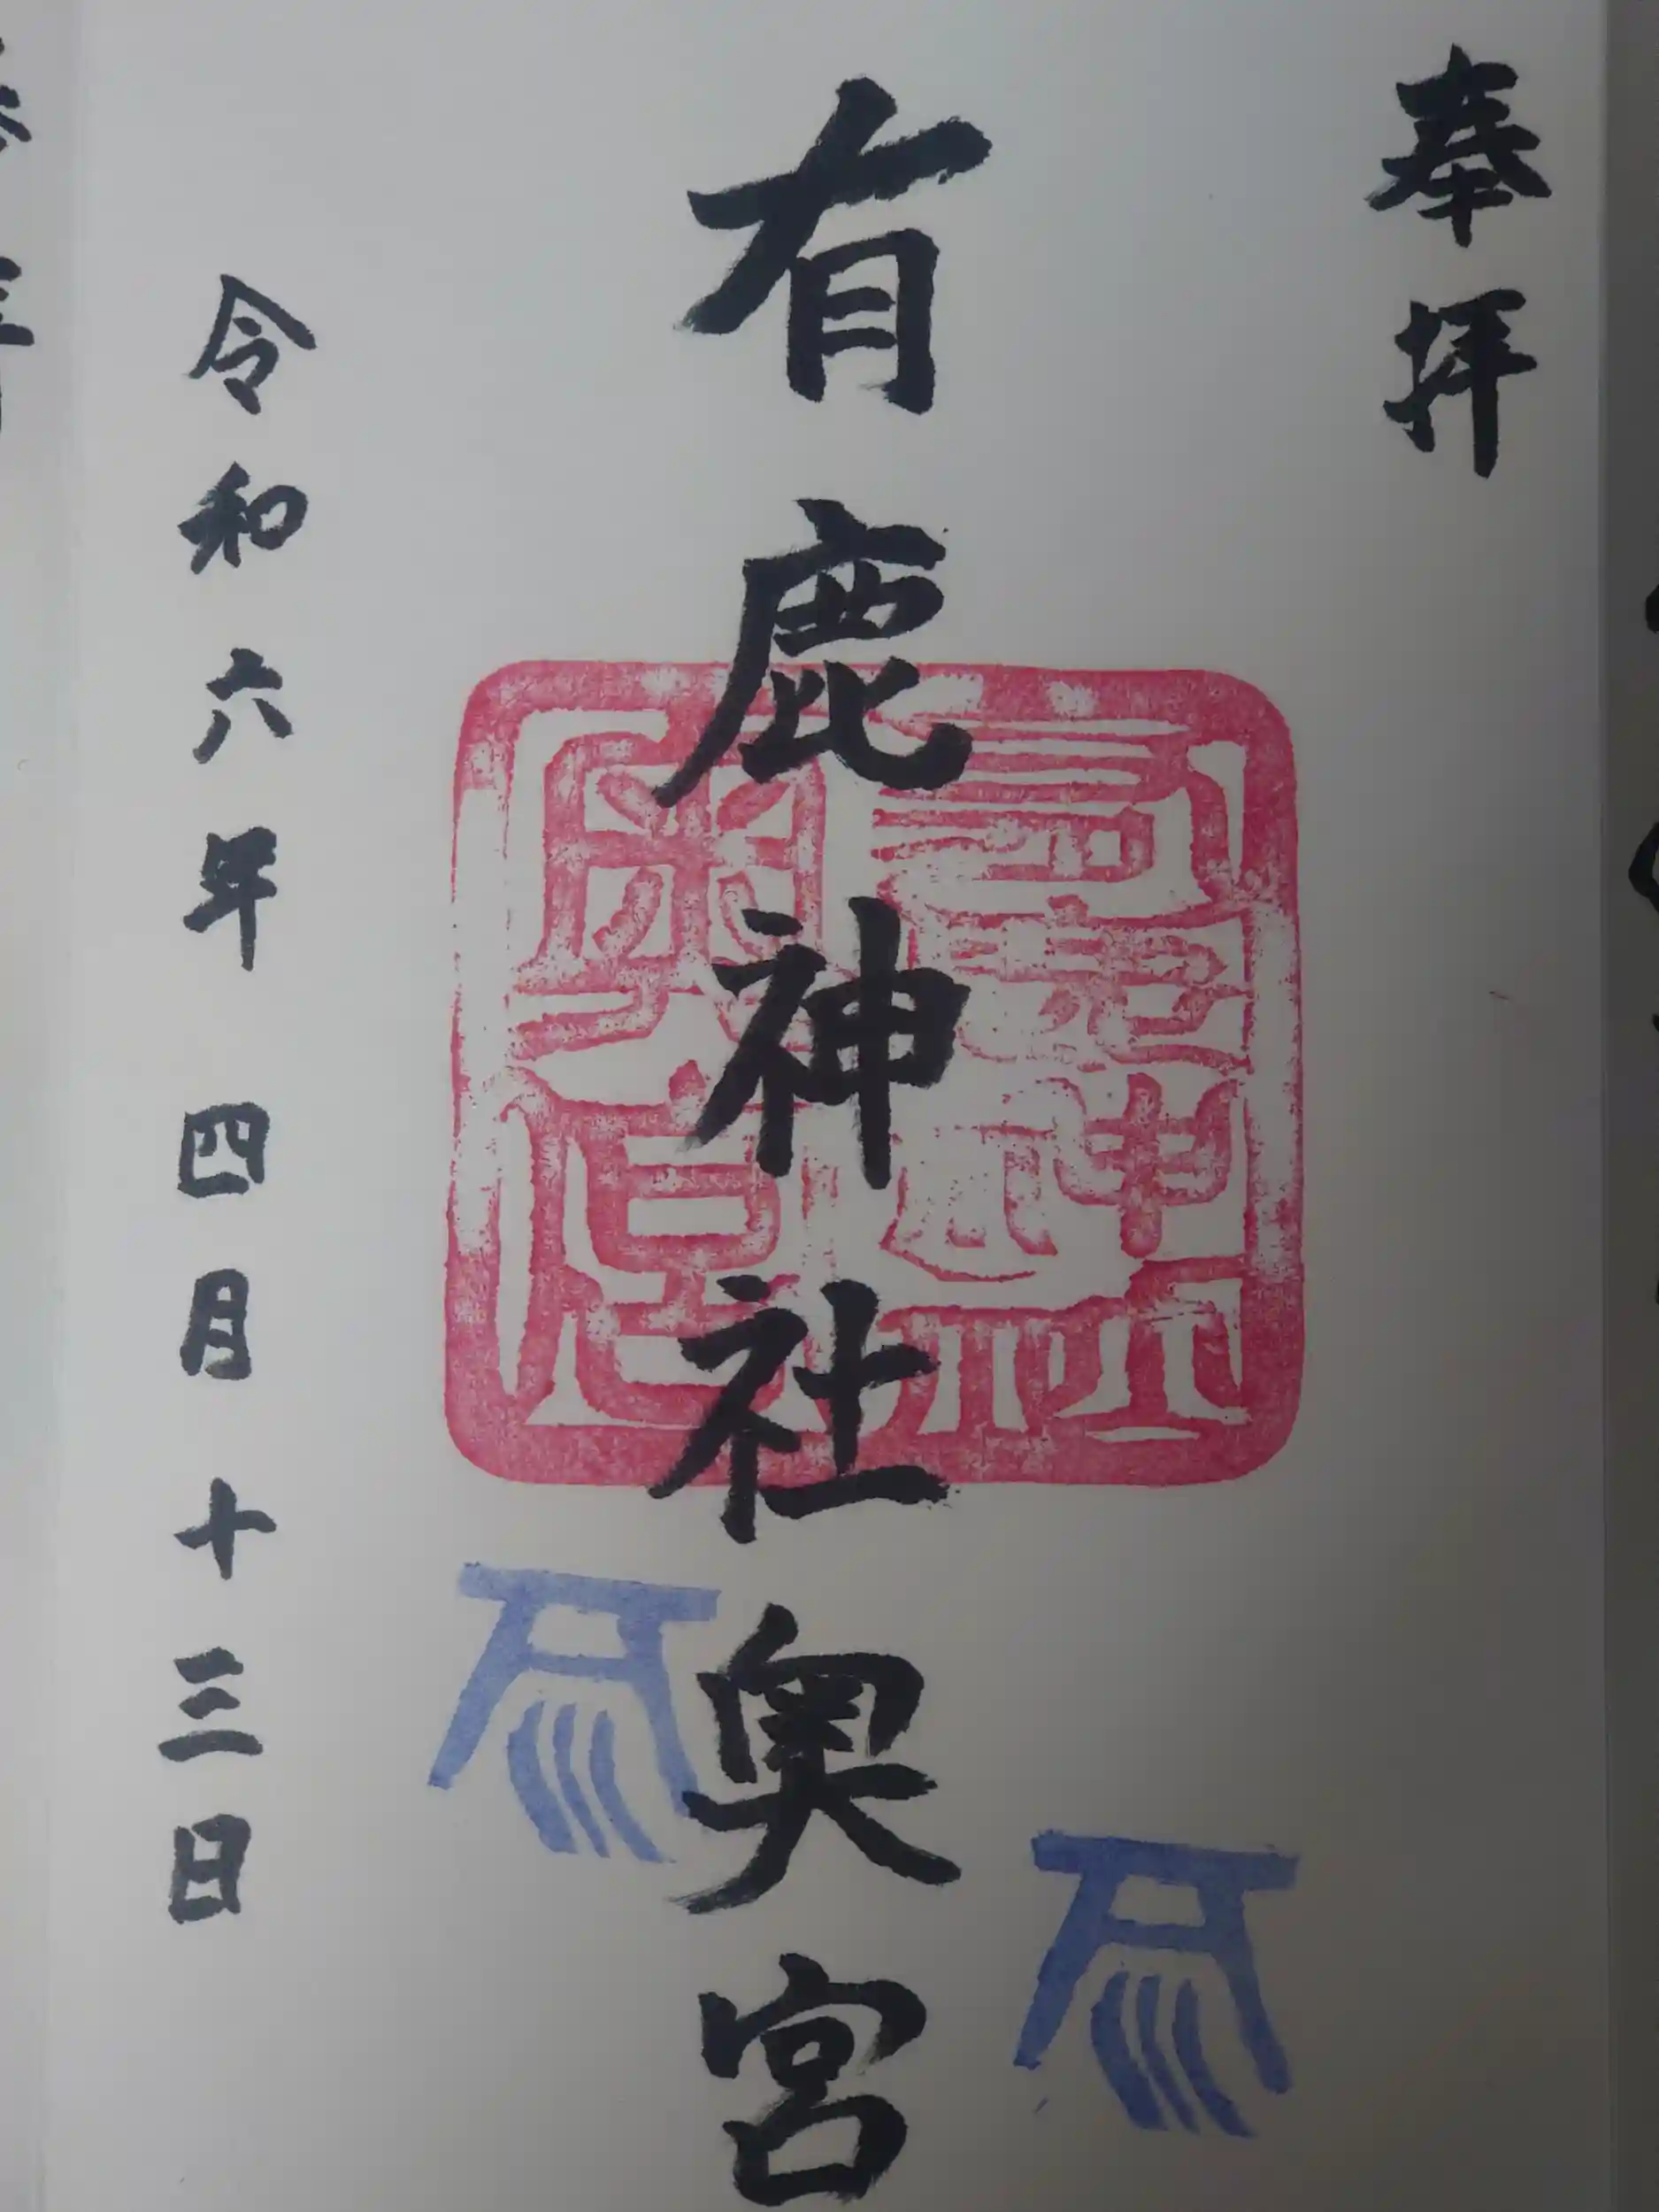 奉拝
有鹿神社奥宮
令和六年四月十三日